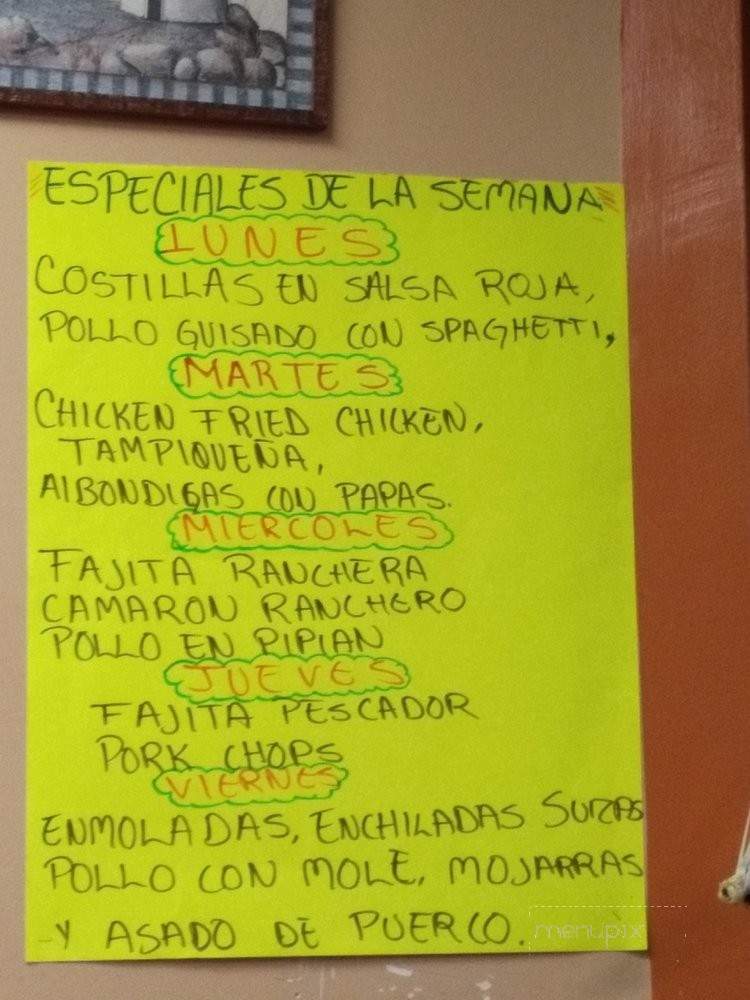 ESPECIALES DE LA SEMANA
LUNES
COSTILLAS EN SALSA ROJA,
POLLO GUISADO CON SPAGHETTI,
MARTES
CHICKEN FRIED CHICKEN,
TAMPIQUEÑA,
AlBONDIGAS CON PAPAS.
MIERCOLES
FAJITA RANCHERA
CAMARON RANCHERO
POLLO EN PIPIAN
JUEVES
FAJITA PESCADOR
PORK CHOPS
VIERNES
ENMOLADAS, ENCHILADAS SUIZAS
POLLO CON MOLE, MOJARRAS
-Y ASADO DE PUERCO.
menupix